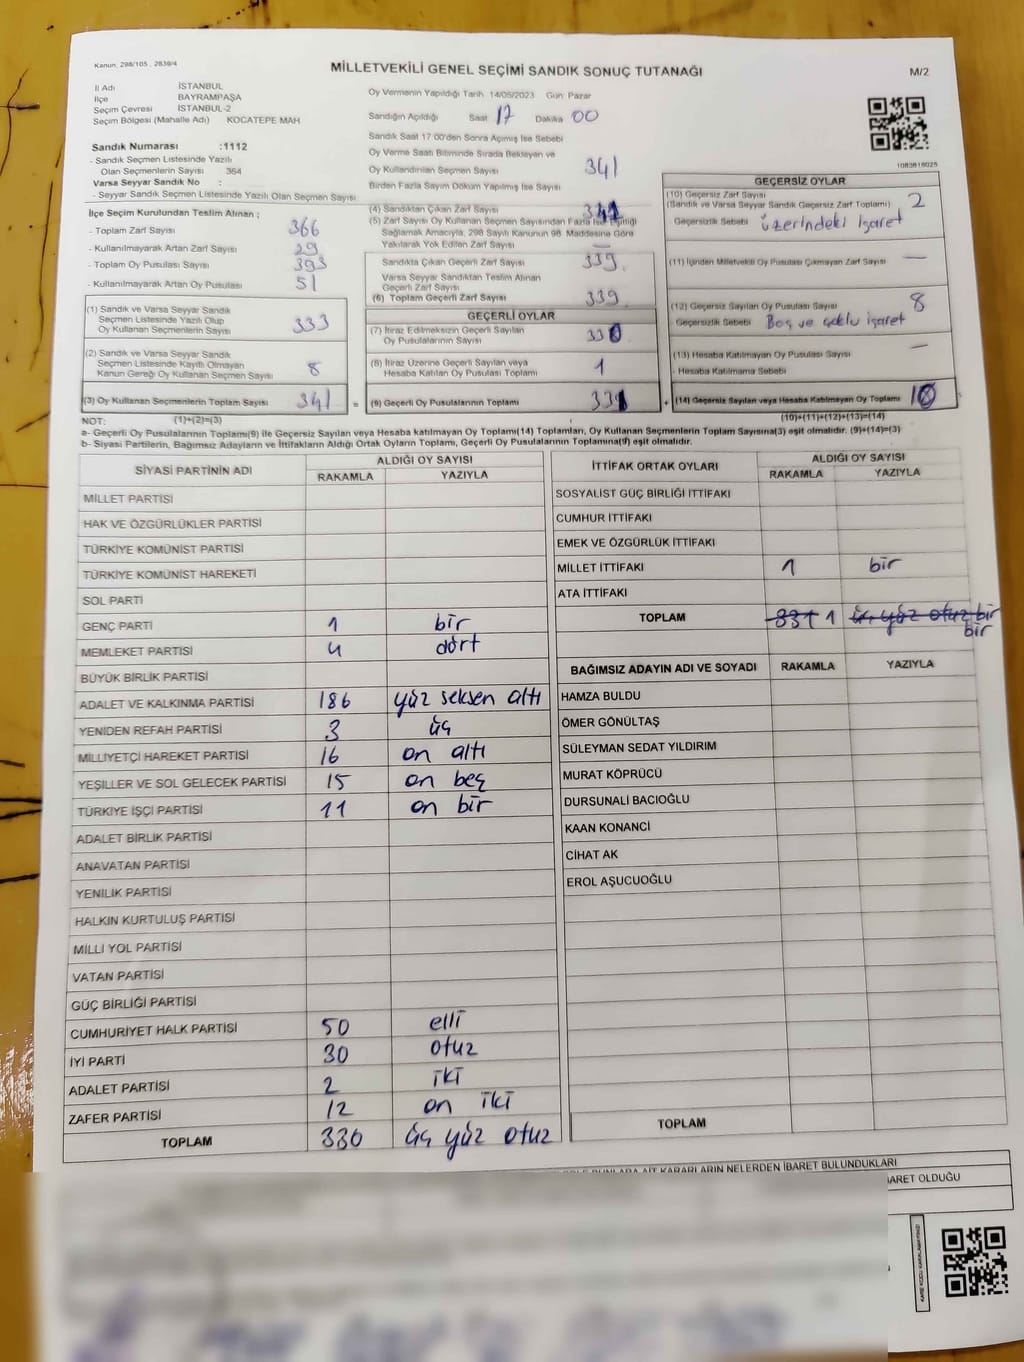 Kanun, 298/105 , 2839/4
MİLLETVEKİLİ GENEL SEÇİMİ SANDIK SONUÇ TUTANAĞI
M/2
İl Adı İSTANBUL
İlçe BAYRAMPAŞA
Seçim Çevresi İSTANBUL-2
Seçim Bölgesi (Mahalle Adı) KOCATEPE MAH
Sandık Numarası :1112
- Sandık Seçmen Listesinde Yazılı
Olan Seçmenlerin Sayısı 354
Varsa Seyyar Sandık No :
- Seyyar Sandık Seçmen Listesinde Yazılı Olan Seçmen Sayısı
Oy Vermenin Yapıldığı Tarih 14/05/2023 Gün Pazar
Sandığın Açıldığı Saat 17 Dakika 00
Sandık Saat 17:00'den Sonra Açılmış İse Sebebi
Oy Verme Saati Bitiminde Sırada Bekleyen ve
Oy Kullandırılan Seçmen Sayısı 341
Birden Fazla Sayım Döküm Yapılmış İse Sayısı
1083616025
İlçe Seçim Kurulundan Teslim Alınan ;
- Toplam Zarf Sayısı 366
- Kullanılmayarak Artan Zarf Sayısı 29
- Toplam Oy Pusulası Sayısı 393
- Kullanılmayarak Artan Oy Pusulası 51
(1) Sandık ve Varsa Seyyar Sandık
Seçmen Listesinde Yazılı Olup
Oy Kullanan Seçmenlerin Sayısı 333
(2) Sandık ve Varsa Seyyar Sandık
Seçmen Listesinde Kayıtlı Olmayan
Kanun Gereği Oy Kullanan Seçmen Sayısı 8
(3) Oy Kullanan Seçmenlerin Toplam Sayısı 341 =
(4) Sandıktan Çıkan Zarf Sayısı 341
(5) Zarf Sayısı Oy Kullanan Seçmen Sayısından Fazla İse Eşitliği
Sağlamak Amacıyla, 298 Sayılı Kanunun 98. Maddesine Göre
Yakılarak Yok Edilen Zarf Sayısı —
Sandıkta Çıkan Geçerli Zarf Sayısı 339
Varsa Seyyar Sandıktan Teslim Alınan
Geçerli Zarf Sayısı
(6) Toplam Geçerli Zarf Sayısı 339
GEÇERLİ OYLAR
(7) İtiraz Edilmeksizin Geçerli Sayılan
Oy Pusulalarının Sayısı 330
(8) İtiraz Üzerine Geçerli Sayılan veya
Hesaba Katılan Oy Pusulası Toplamı 1
(9) Geçerli Oy Pusulalarının Toplamı 331 +
GEÇERSİZ OYLAR
(10) Geçersiz Zarf Sayısı
(Sandık ve Varsa Seyyar Sandık Geçersiz Zarf Toplamı) 2
Geçersizlik Sebebi üzerindeki işaret
(11) İçinden Milletvekili Oy Pusulası Çıkmayan Zarf Sayısı —
(12) Geçersiz Sayılan Oy Pusulası Sayısı 8
- Geçersizlik Sebebi Boş ve çoklu işaret
(13) Hesaba Katılmayan Oy Pusulası Sayısı —
- Hesaba Katılmama Sebebi
(14) Geçersiz Sayılan veya Hesaba Katılmayan Oy Toplamı 10
NOT: (1)+(2)=(3) (10)+(11)+(12)+(13)=(14)
a- Geçerli Oy Pusulalarının Toplamı(9) ile Geçersiz Sayılan veya Hesaba katılmayan Oy Toplamı(14) Toplamları, Oy Kullanan Seçmenlerin Toplam Sayısına(3) eşit olmalıdır. (9)+(14)=(3)
b- Siyasi Partilerin, Bağımsız Adayların ve İttifakların Aldığı Ortak Oyların Toplamı, Geçerli Oy Pusulalarının Toplamına(9) eşit olmalıdır.
SİYASİ PARTİNİN ADI ALDIĞI OY SAYISI
RAKAMLA YAZIYLA
MİLLET PARTİSİ
HAK VE ÖZGÜRLÜKLER PARTİSİ
TÜRKİYE KOMÜNİST PARTİSİ
TÜRKİYE KOMÜNİST HAREKETİ
SOL PARTİ
GENÇ PARTİ 1 bir
MEMLEKET PARTİSİ 4 dört
BÜYÜK BİRLİK PARTİSİ
ADALET VE KALKINMA PARTİSİ 186 yüz seksen altı
YENİDEN REFAH PARTİSİ 3 üç
MİLLİYETÇİ HAREKET PARTİSİ 16 on altı
YEŞİLLER VE SOL GELECEK PARTİSİ 15 on beş
TÜRKİYE İŞÇİ PARTİSİ 11 on bir
ADALET BİRLİK PARTİSİ
ANAVATAN PARTİSİ
YENİLİK PARTİSİ
HALKIN KURTULUŞ PARTİSİ
MİLLİ YOL PARTİSİ
VATAN PARTİSİ
GÜÇ BİRLİĞİ PARTİSİ
CUMHURİYET HALK PARTİSİ 50 elli
İYİ PARTİ 30 otuz
ADALET PARTİSİ 2 iki
ZAFER PARTİSİ 12 on iki
TOPLAM 330 üç yüz otuz
İTTİFAK ORTAK OYLARI ALDIĞI OY SAYISI
RAKAMLA YAZIYLA
SOSYALİST GÜÇ BİRLİĞİ İTTİFAKI
CUMHUR İTTİFAKI
EMEK VE ÖZGÜRLÜK İTTİFAKI
MİLLET İTTİFAKI 1 bir
ATA İTTİFAKI
TOPLAM 331 1 üç yüz otuz bir
bir
BAĞIMSIZ ADAYIN ADI VE SOYADI RAKAMLA YAZIYLA
HAMZA BULDU
ÖMER GÖNÜLTAŞ
SÜLEYMAN SEDAT YILDIRIM
MURAT KÖPRÜCÜ
DURSUNALİ BACIOĞLU
KAAN KONANCİ
CİHAT AK
EROL AŞUCUOĞLU
TOPLAM
KARARLARIN NELERDEN İBARET BULUNDUKLARI
OLDUĞU